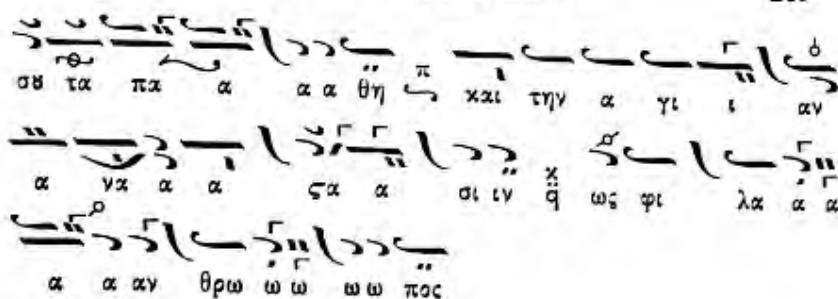 σȣ τα πα α α α θη π και την α γι ι αν
α να α α ϛα α σι ιν χ̈ q ως φι λα α α
α α αν θρω ω ω ω ω πος